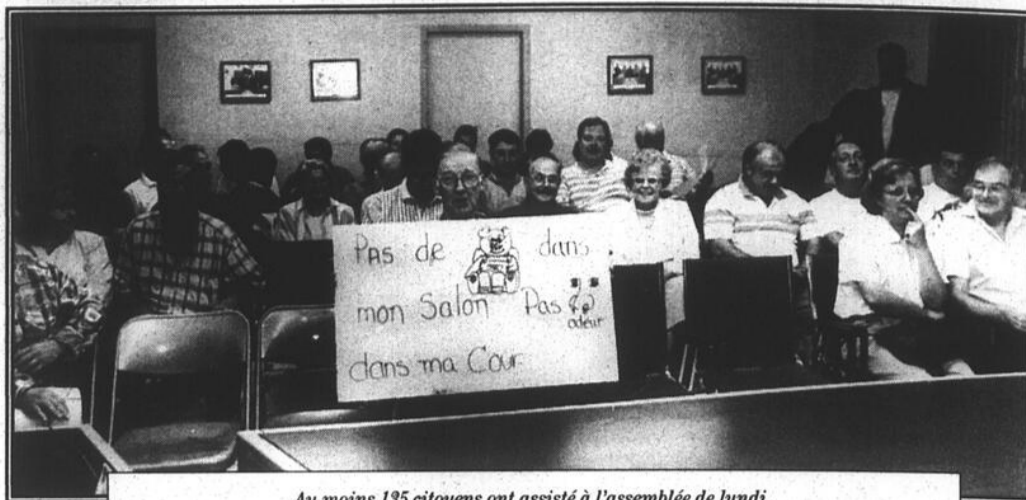 Pas de dans
mon Salon Pas
odeur
dans ma Cour
Au moins 125 citoyens ont assisté à l'assemblée de lundi.